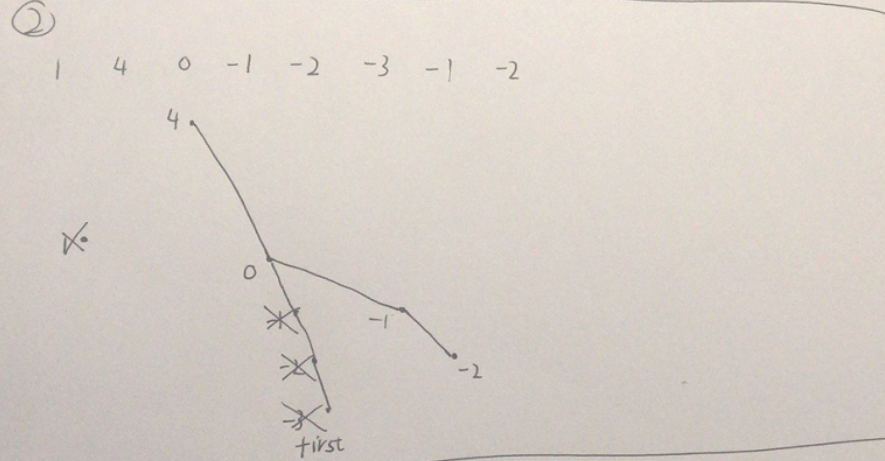 ②
1 4 0 -1 -2 -3 -1 -2
4
1
0
-1
-1
-2
-2
-3
first